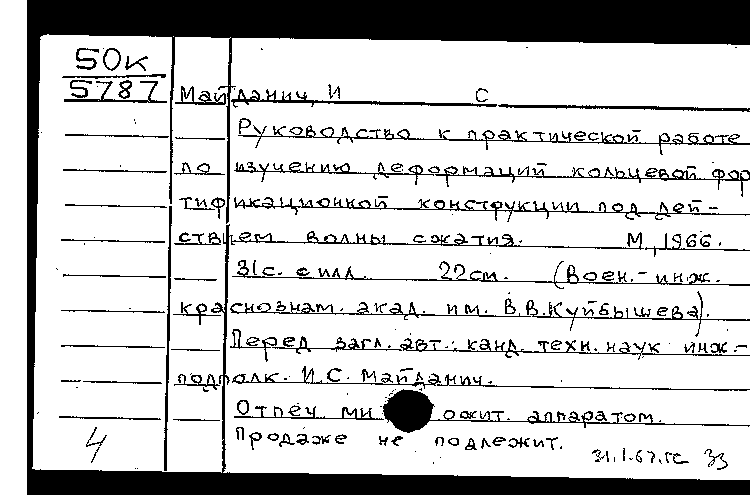 50к
5787
Майданич, И С
Руководство к практической работе
по изучению деформаций кольцевой фор
тификационной конструкции под дей-
ствием волны сжатия. М., 1966.
31с. с илл. 22см. (Воен.-инж.
краснознам. акад. им. В.В.Куйбышева).
Перед загл. авт.: канд. техн. наук инж.-
подполк. И.С. Майданич.
Отпеч ми ожит. аппаратом.
Продаже не подлежит.
4 31.1.67.гс 33